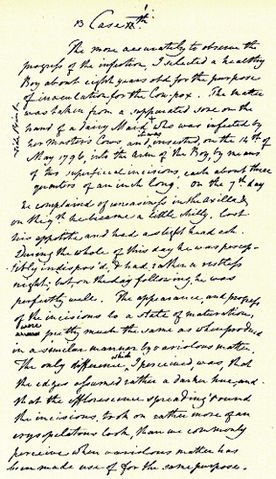 13 Case
The more accurately to observe the
progress of the infection, I selected a healthy
Boy about eight years old for the purpose
of inoculation for the Cow-pox. The matter
was taken from a suppurated sore on the
hand of a dairy Maid who was infected by
her Masters Cows and inserted, on the 14th of
May 1796, into the arm of the Boy, by means
of two superficial incisions, each about three
quarters of an inch long. On the 7th day
he complained of uneasiness in the axilla &
on the 9th he became a little chilly, lost
his appetite and had a slight head ach.
During the whole of this day he was percep-
tibly indispos'd, & had rather a restless
night; but on the day following he was
perfectly well. The appearance and progress
of the incisions to a state of maturation,
were pretty much the same as when produced
in a similar manner by variolous matter.
The only difference which I perceived, was that
the edges assumed rather a darker hue, and
that the efflorescence spreading round
the incisions, took on rather more of an
erysipelatous look, than we commonly
perceive when variolous matter has
been made use of for the same purpose.